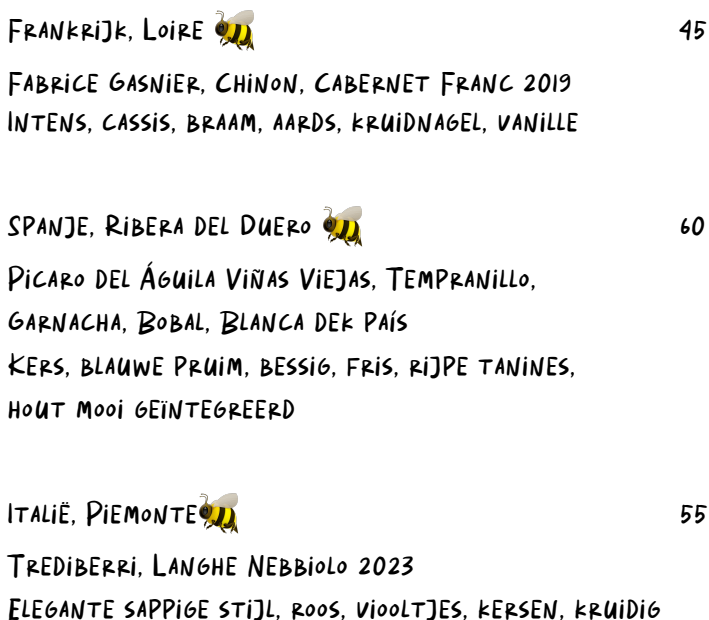 Frankrijk, Loire 45
Fabrice Gasnier, Chinon, Cabernet Franc 2019
Intens, cassis, braam, aards, kruidnagel, vanille
Spanje, Ribera del Duero 60
Picaro del Águila Viñas Viejas, Tempranillo,
Garnacha, Bobal, Blanca dek País
Kers, blauwe pruim, bessig, fris, rijpe tanines,
hout mooi geïntegreerd
Italië, Piemonte 55
Trediberri, Langhe Nebbiolo 2023
Elegante sappige stijl, roos, viooltjes, kersen, kruidig